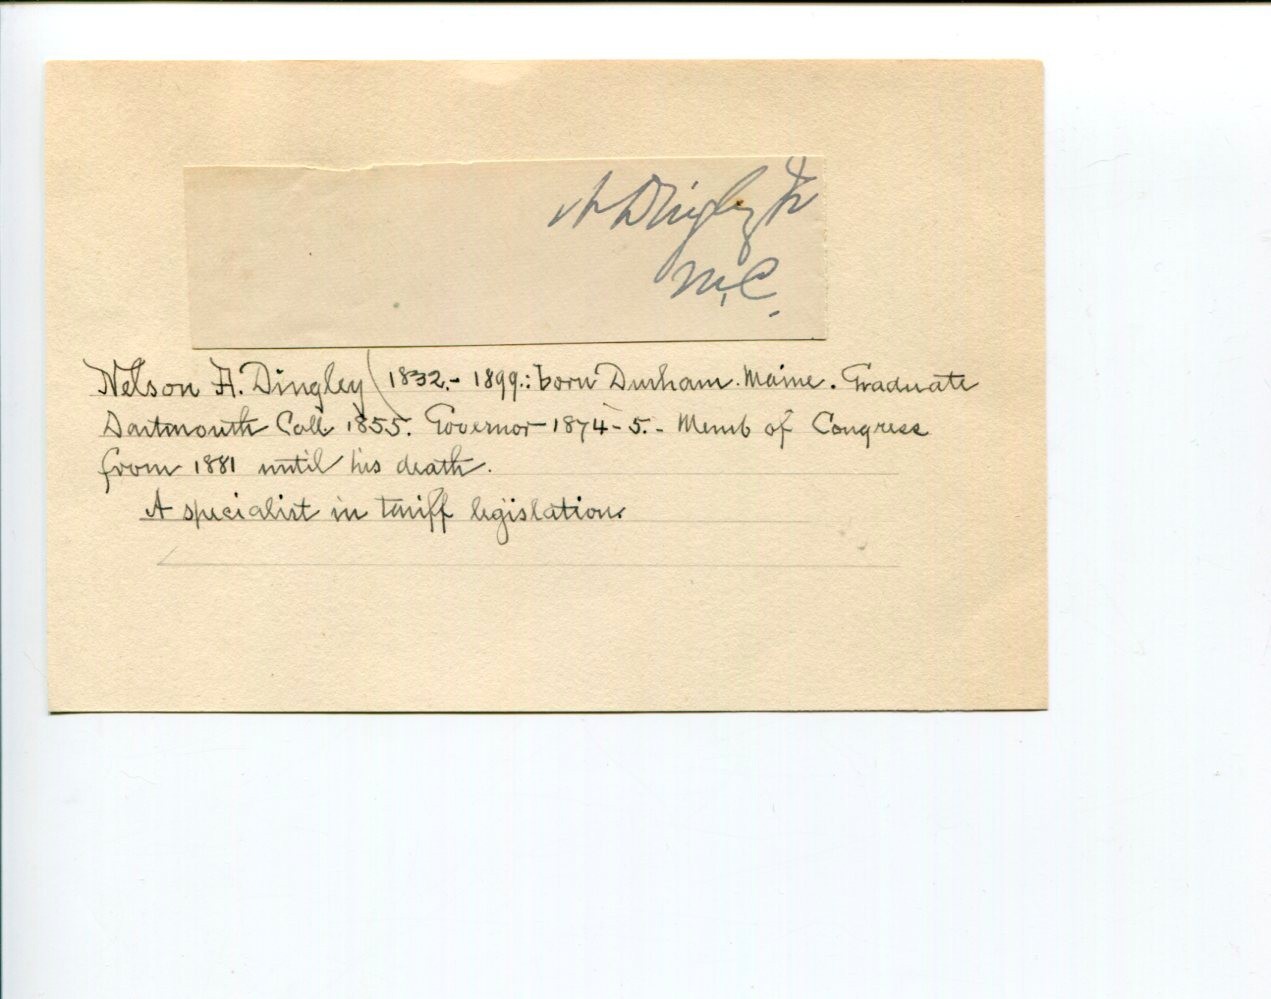 N Dingley Jr
M.C.
Nelson A. Dingley (1832.- 1899.: born Durham. Maine. Graduate
Dartmouth Coll. 1855. Governor 1874-5.- Memb of Congress
from 1881 until his death.
A specialist in tariff legislation.